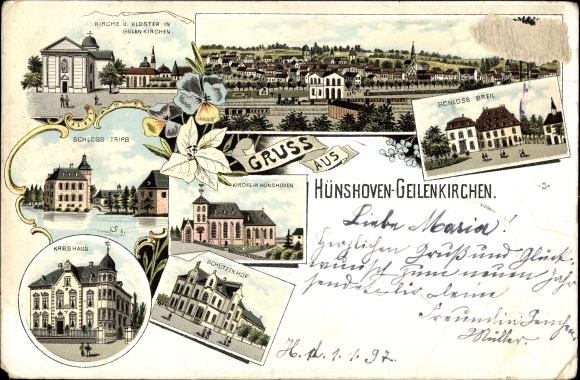 KIRCHE U. KLOSTER IN
GEILENKIRCHEN.
SCHLOSS BREIL
SCHLOSS TRIPS
GRUSS
AUS
HÜNSHOVEN-GEILENKIRCHEN.
KIRCHE IN HÜNSHOVEN
KREISHAUS
SCHÜTZENHOF
Liebe Maria!
Herzlichen Gruß und Glück-
wunsch zum neuen Jahr
sendet Dir Deine
Freundin
Müller.
H. d. 1.1.97.